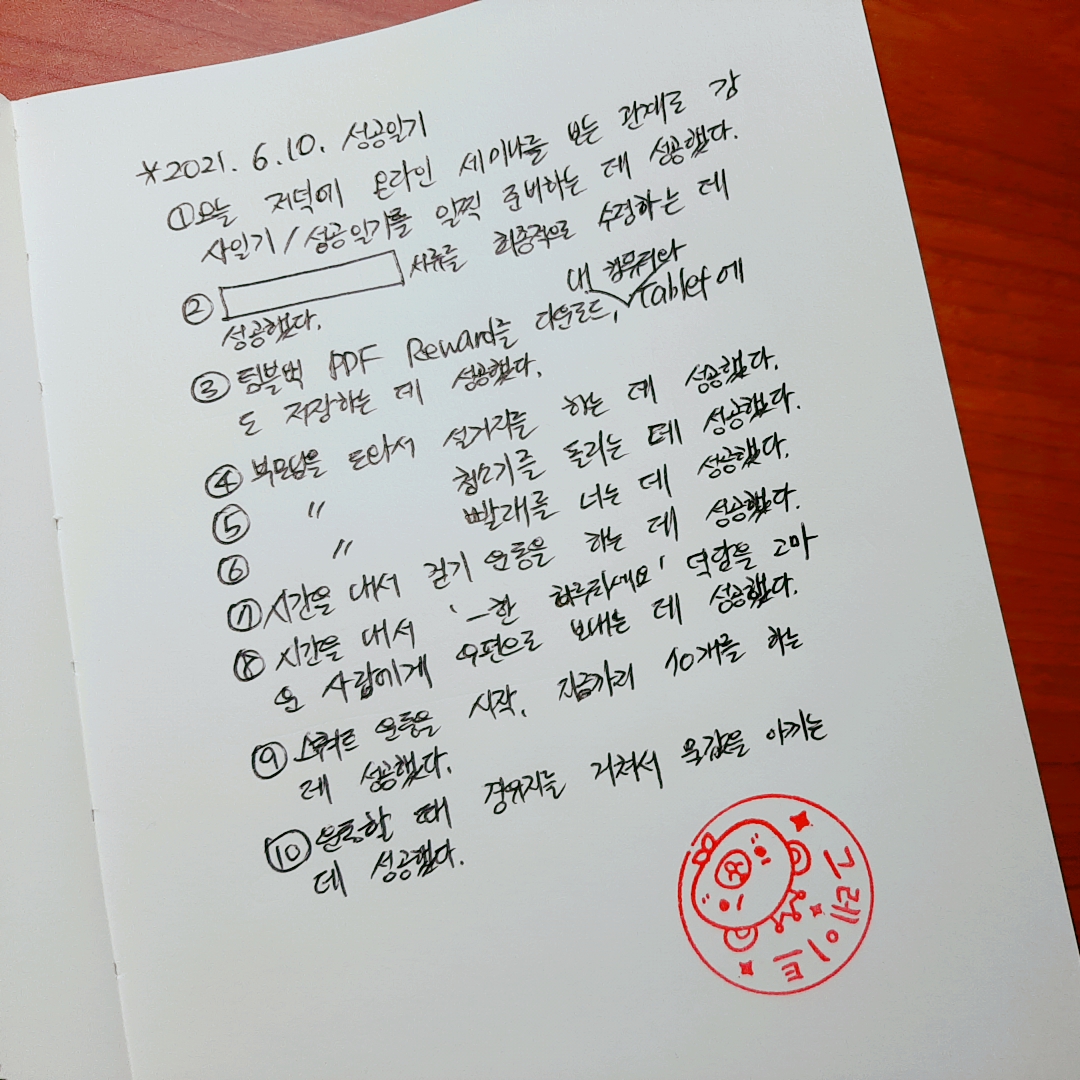 *2021. 6.10. 성공일기
①오늘 저녁에 온라인 세미나를 보는 관계로 감
사일기/성공일기를 일찍 준비하는 데 성공했다.
② 서류를 최종적으로 수정하는 데
성공했다.
내 컴퓨터와
③ 텀블벅 PDF Reward를 다운로드, Tablet에
도 저장하는 데 성공했다.
④ 부모님을 도와서 설거지를 하는 데 성공했다.
⑤ " 청소기를 돌리는 데 성공했다.
⑥ " 빨래를 너는 데 성공했다.
⑦시간을 내서 걷기 운동을 하는 데 성공했다.
⑧ 시간을 내서 '_한 하루되세요' 덕담을 고마
운 사람에게 우편으로 보내는 데 성공했다.
⑨스쿼트 운동을 시작, 지금까지 10개를 하는
데 성공했다.
⑩운동할 때 경유지를 거쳐서 옷값을 아끼는
데 성공했다.
그레이트